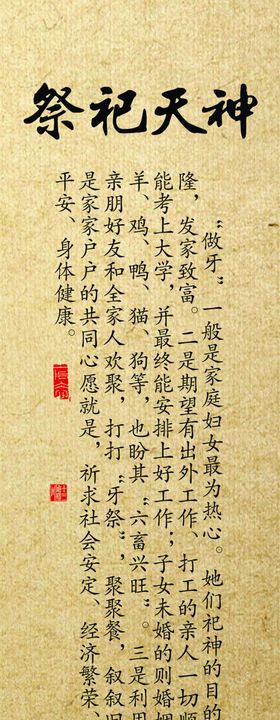 祭祀天神
“做牙”一般是家庭妇女最为热心。她们祀神的目的
隆，发家致富。二是期望有出外工作、打工的亲人一切顺
能考上大学，并最终能安排上好工作；子女未婚的则婚姻
羊、鸡、鸭、猫、狗等，也盼其“六畜兴旺”。三是利用
亲朋好友和全家人欢聚，打打“牙祭”，聚聚餐，叙叙旧
是家家户户的共同心愿就是，祈求社会安定、经济繁荣、
平安、身体健康。